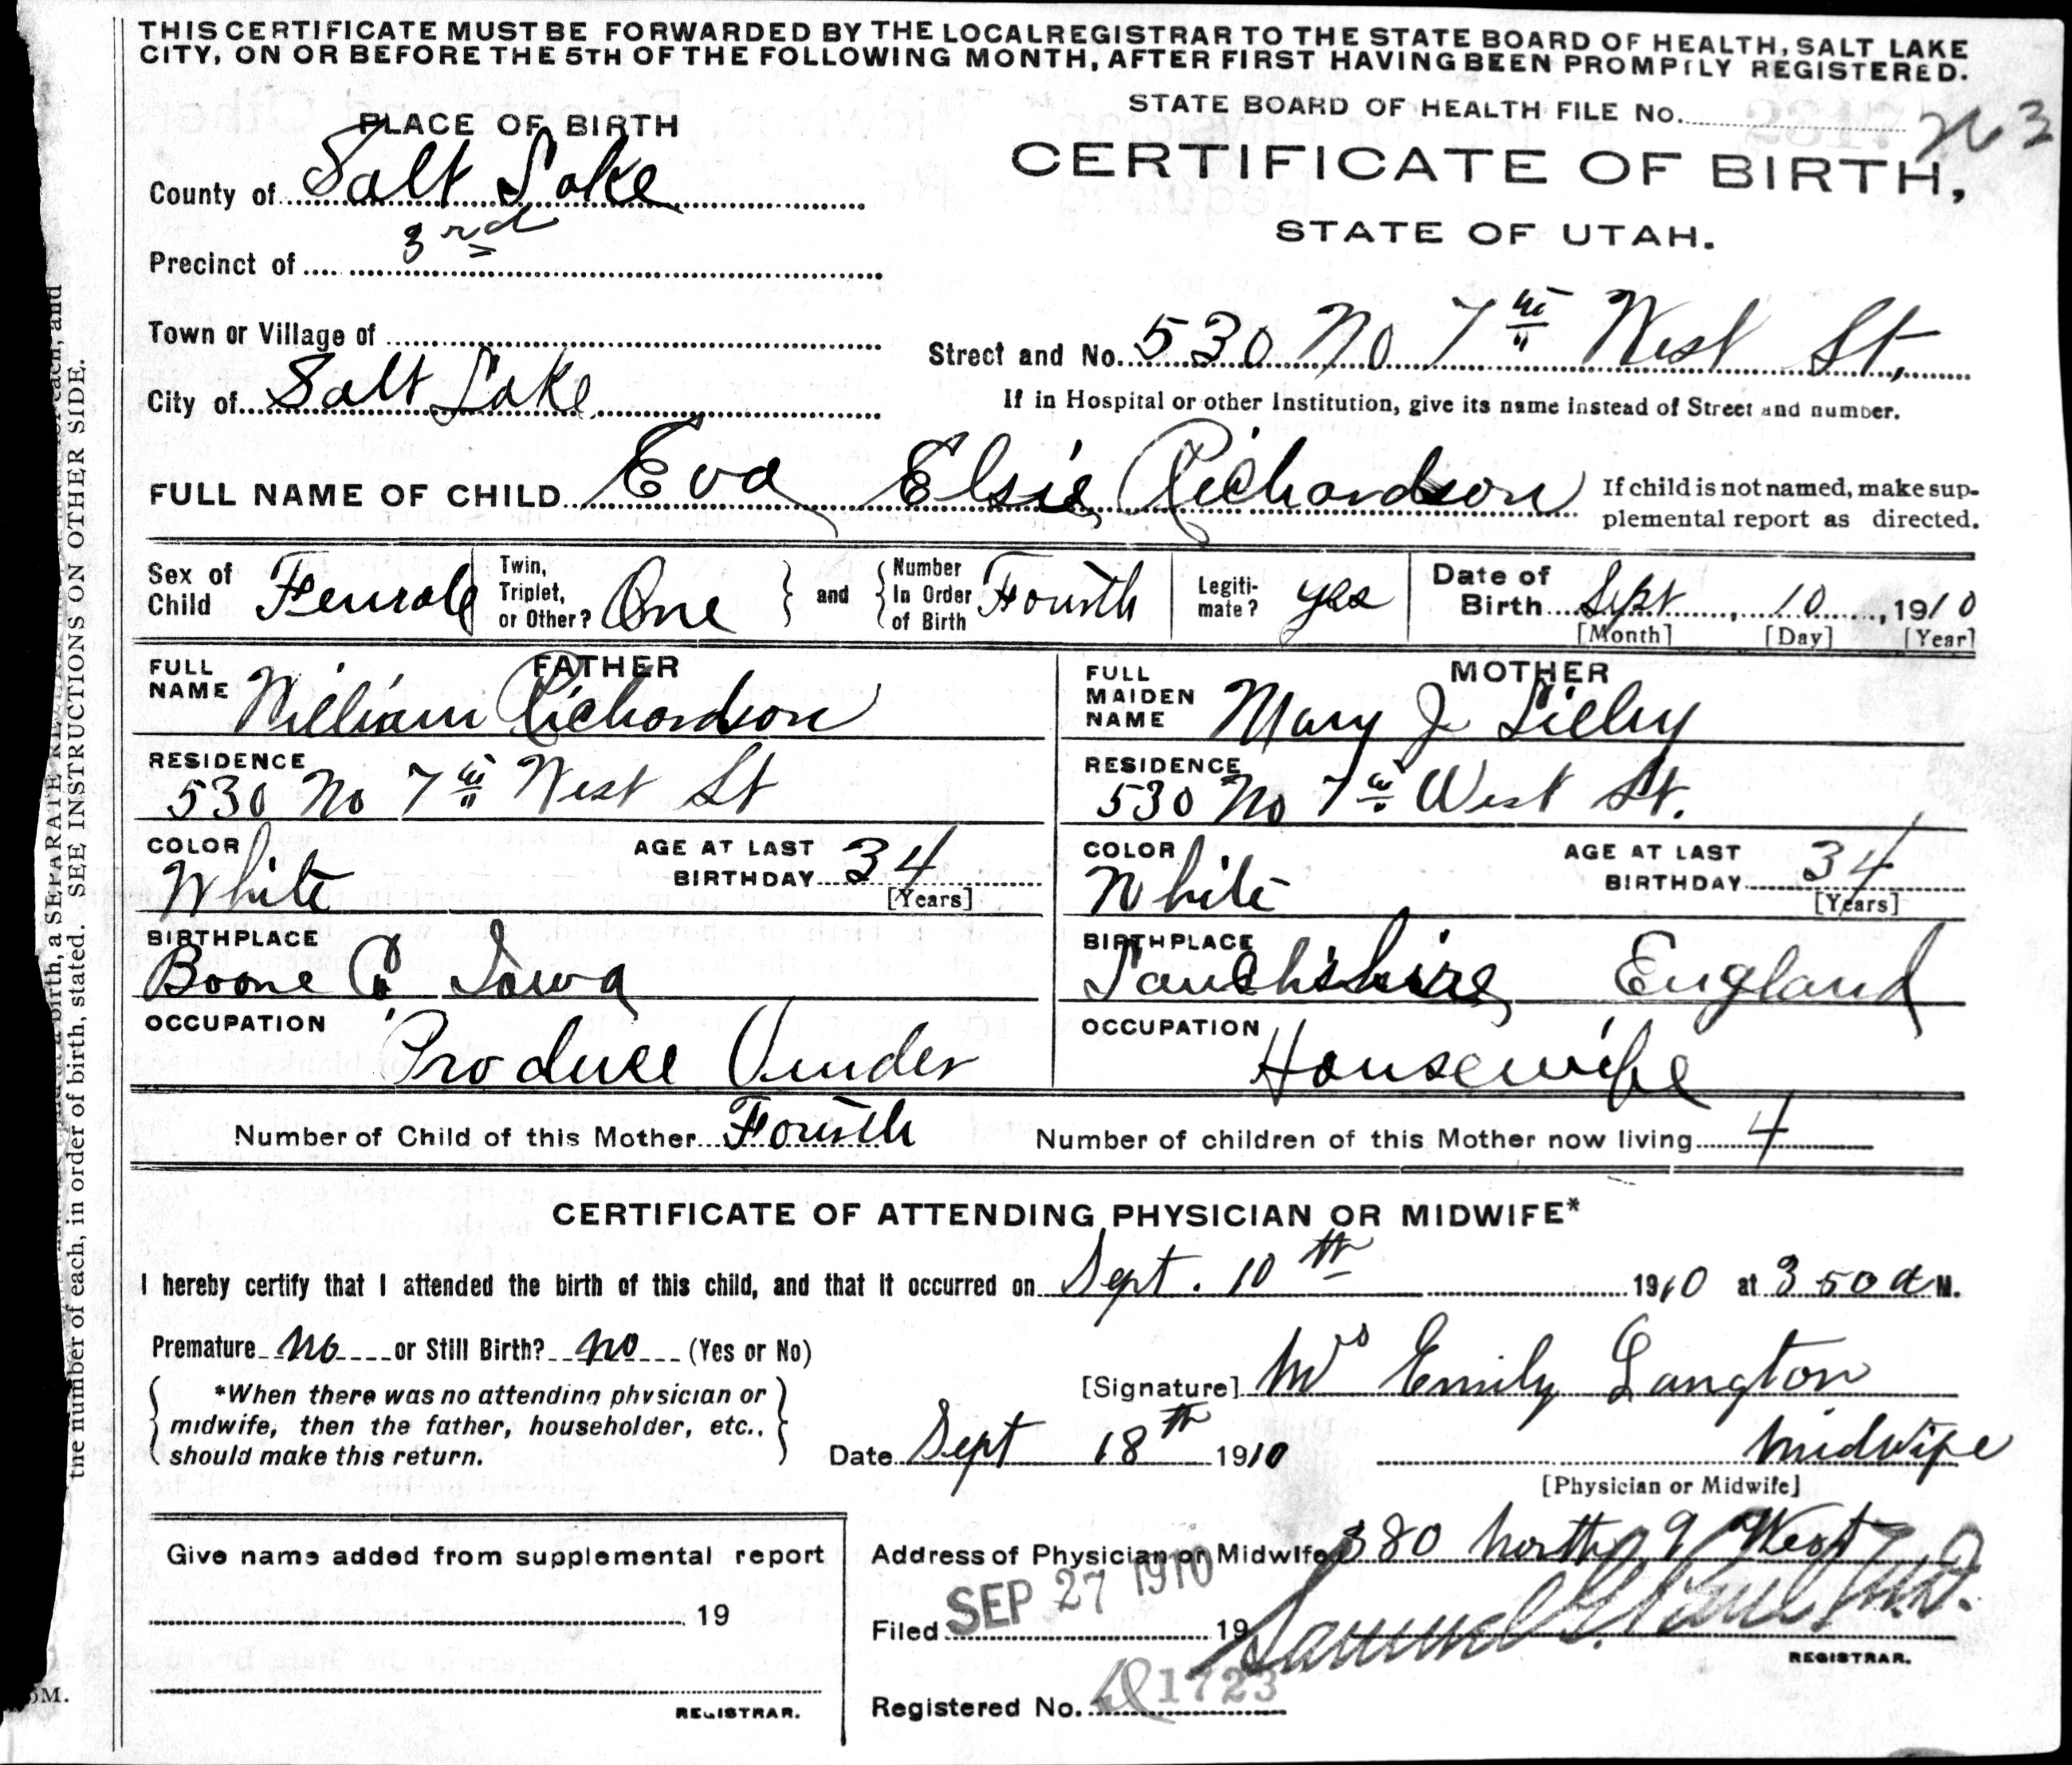 THIS CERTIFICATE MUST BE FORWARDED BY THE LOCAL REGISTRAR TO THE STATE BOARD OF HEALTH, SALT LAKE
CITY, ON OR BEFORE THE 5TH OF THE FOLLOWING MONTH, AFTER FIRST HAVING BEEN PROMPTLY REGISTERED.
STATE BOARD OF HEALTH FILE No.
PLACE OF BIRTH
CERTIFICATE OF BIRTH,
STATE OF UTAH.
County of Salt Lake
Precinct of 3rd
Town or Village of
Street and No. 530 No 7th West St,
City of Salt Lake
If in Hospital or other Institution, give its name instead of Street and number.
FULL NAME OF CHILD Eva Elsie Richardson
If child is not named, make sup-
plemental report as directed.
Sex of Child Female
Twin, Triplet, or Other? One
and
Number In Order of Birth Fourth
Legiti-mate? yes
Date of Birth Sept, 10, 1910
[Month] [Day] [Year]
FATHER
FULL NAME William Richardson
RESIDENCE
530 No 7th West St
COLOR White
AGE AT LAST BIRTHDAY 34
[Years]
BIRTHPLACE
Boone Co Iowa
OCCUPATION
Produce Vinder
MOTHER
FULL MAIDEN NAME Mary J Lilley
RESIDENCE
530 No 7th West St.
COLOR White
AGE AT LAST BIRTHDAY 34
[Years]
BIRTHPLACE
England
OCCUPATION
Housewife
Number of Child of this Mother Fourth
Number of children of this Mother now living 4
CERTIFICATE OF ATTENDING PHYSICIAN OR MIDWIFE*
I hereby certify that I attended the birth of this child, and that it occurred on Sept. 10th 1910 at 3 50 a M.
Premature No or Still Birth? no (Yes or No)
*When there was no attending physician or
midwife, then the father, householder, etc.,
should make this return.
[Signature] Mrs Emily Langton
Date Sept 18th 1910
Midwife
[Physician or Midwife]
Give name added from supplemental report
19
REGISTRAR.
Address of Physician or Midwife 380 North 9 West
Filed SEP 27 1910 19
Samuel G. Paul M.D.
REGISTRAR.
Registered No. 1723
a birth, a SEPARATE
the number of each, in order of birth, stated. SEE INSTRUCTIONS ON OTHER SIDE.